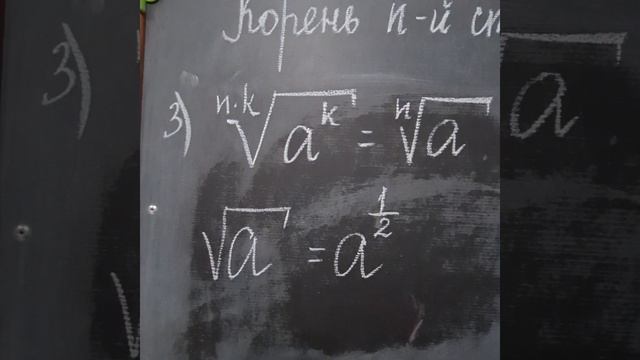 Корень n-й ст
3) ⁿ·ᵏ√aᵏ = ⁿ√a
√a = a^(1/2)